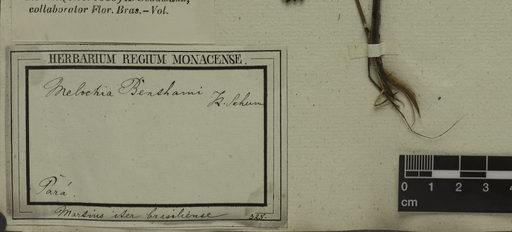 collaborator Flor. Bras.—Vol.
HERBARIUM REGIUM MONACENSE.
Melochia Benthami K. Schum
Pará.
Martius iter brasiliense
0 1 2 3 4
cm